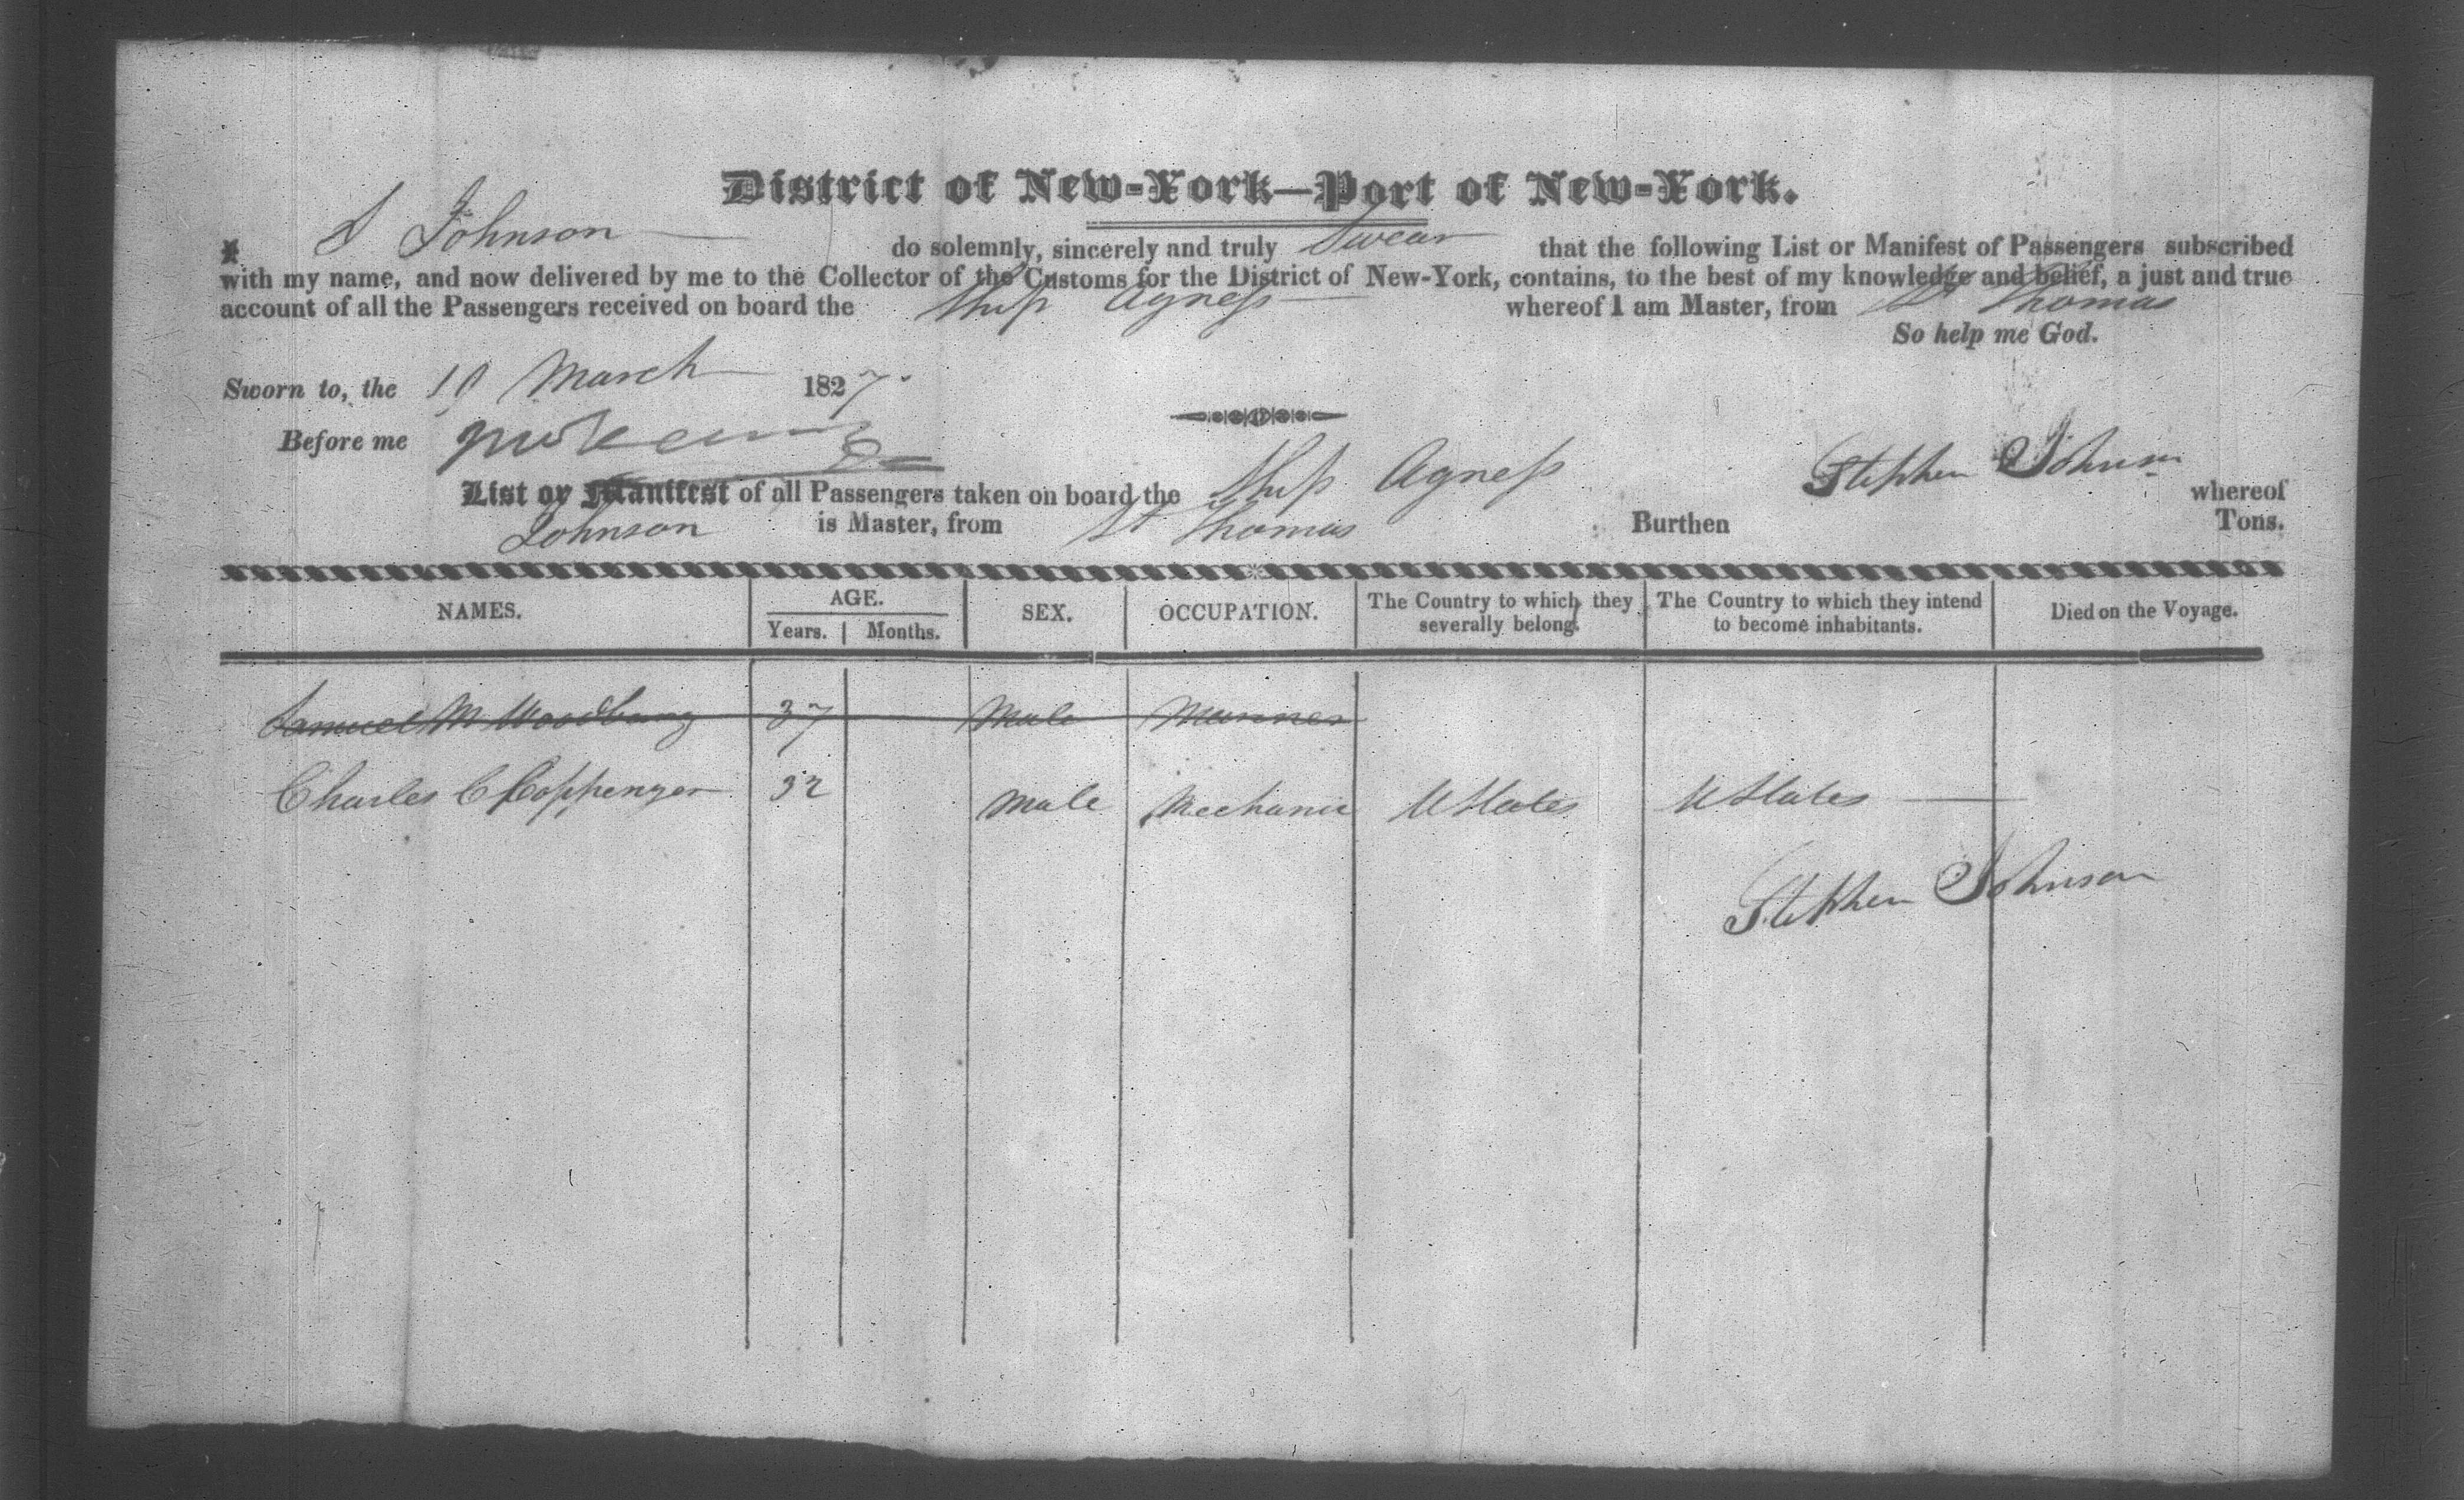 District of New-York—Port of New-York.
I, S Johnson do solemnly, sincerely and truly Swear that the following List or Manifest of Passengers subscribed
with my name, and now delivered by me to the Collector of the Customs for the District of New-York, contains, to the best of my knowledge and belief, a just and true
account of all the Passengers received on board the Ship Agness whereof I am Master, from St Thomas
So help me God.
Sworn to, the 19 March 1827.
Before me
Stephen Johnson
List or Manifest of all Passengers taken on board the Ship Agness whereof
Johnson is Master, from St Thomas Burthen Tons.
NAMES. AGE. Years. Months. SEX. OCCUPATION. The Country to which they severally belong. The Country to which they intend to become inhabitants. Died on the Voyage.
Samuel M Woodbury 37 Male Marriner
Charles C Coppenger 32 Male Mechanic U States U States
Stephen Johnson